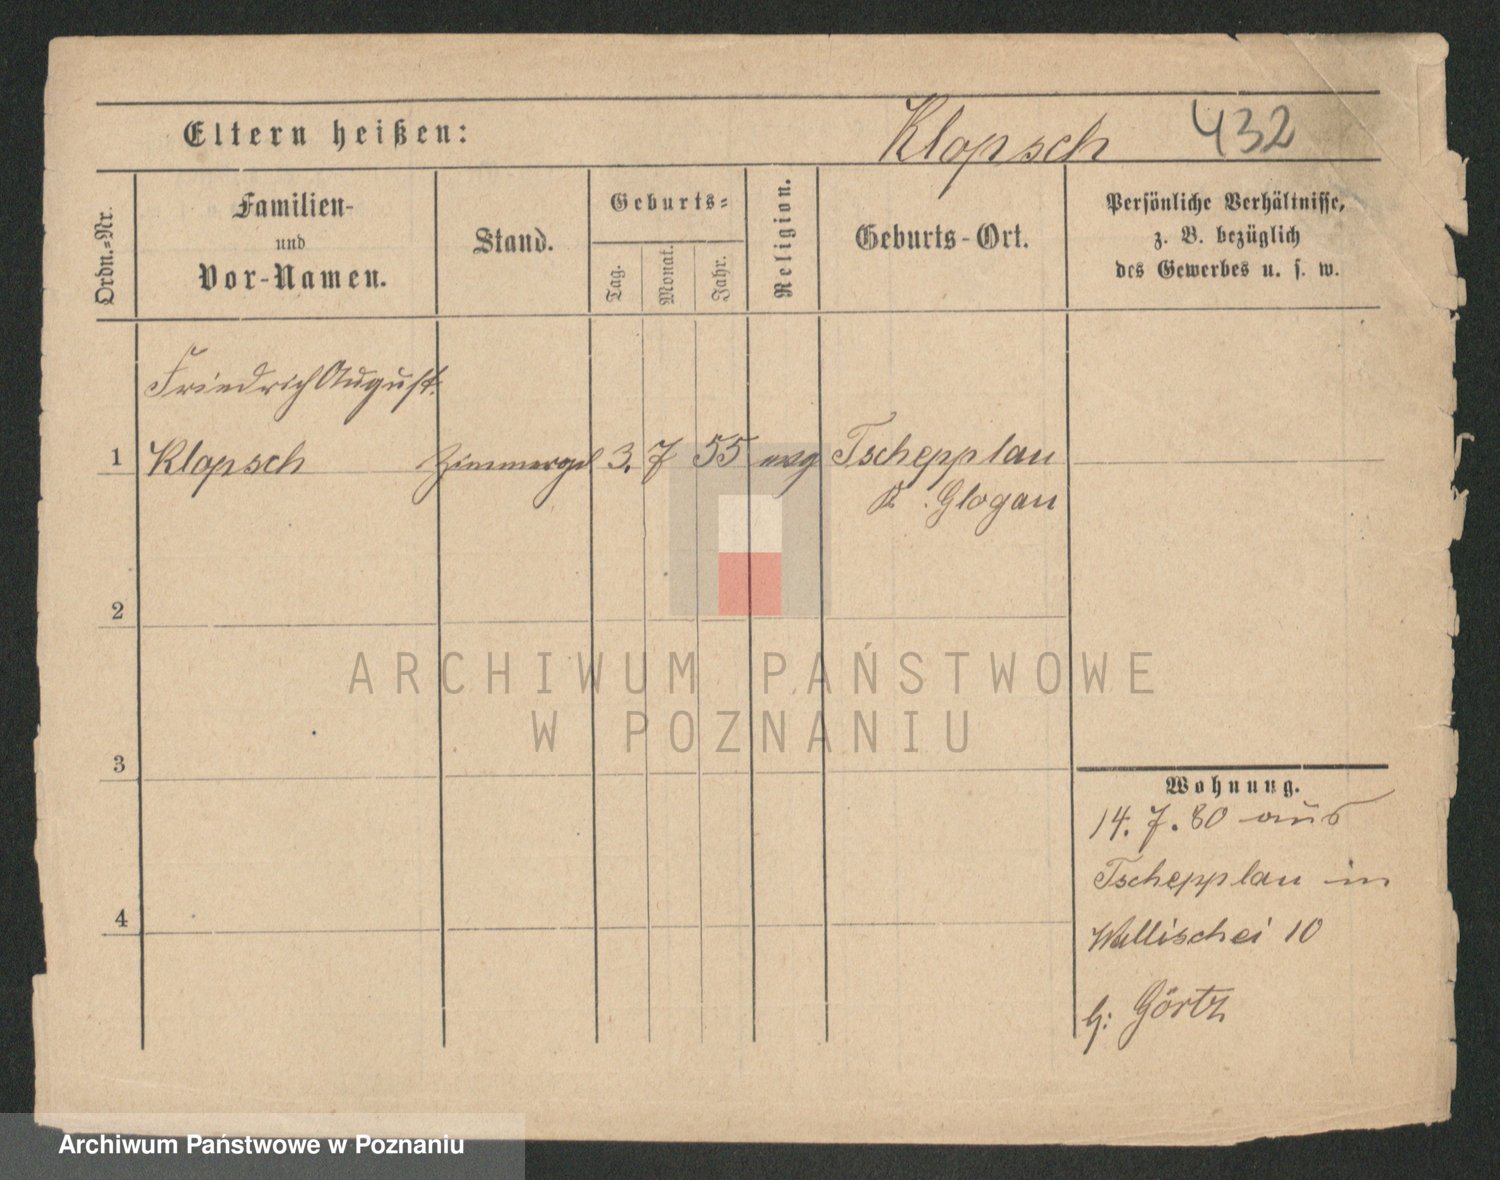 Eltern heißen: Klopsch 432
Ordn.=Nr.
Familien-
und
Vor-Namen.
Stand.
Geburts=
Tag.
Monat.
Jahr.
Religion.
Geburts-Ort.
Persönliche Verhältnisse,
z. B. bezüglich
des Gewerbes u. s. w.
Friedrich August
1 Klopsch Zimmergel 3. 7 55 evg Tschepplau
K. Glogau
2
3
4
Wohnung.
14. 7. 80 aus
Tschepplau in
Wallischei 10
b: Görtz
ARCHIWUM PAŃSTWOWE
W POZNANIU
Archiwum Państwowe w Poznaniu